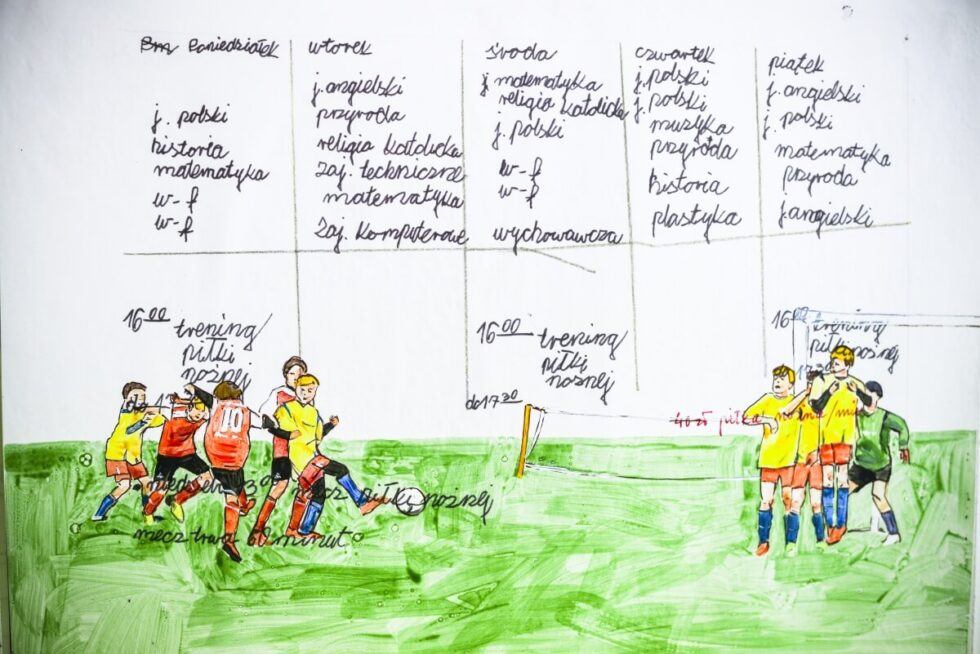 Poniedziałek
j. polski
historia
matematyka
w-f
w-f
wtorek
j. angielski
przyroda
religia katolicka
zaj. techniczne
matematyka
zaj. komputerowe
środa
j matematyka
religia katolicka
j. polski
w-f
w-f
wychowawcza
czwartek
j. polski
j. polski
muzyka
przyroda
historia
plastyka
piątek
j. angielski
j. polski
matematyka
przyroda
j. angielski
16 00 trening
piłki
nożnej
do
16 00 trening
piłki
nożnej
do 17 30
16 00 trening
piłki nożnej
40 zł piłka nożna
10
mecz piłki nożnej
mecz trwa 60 minut